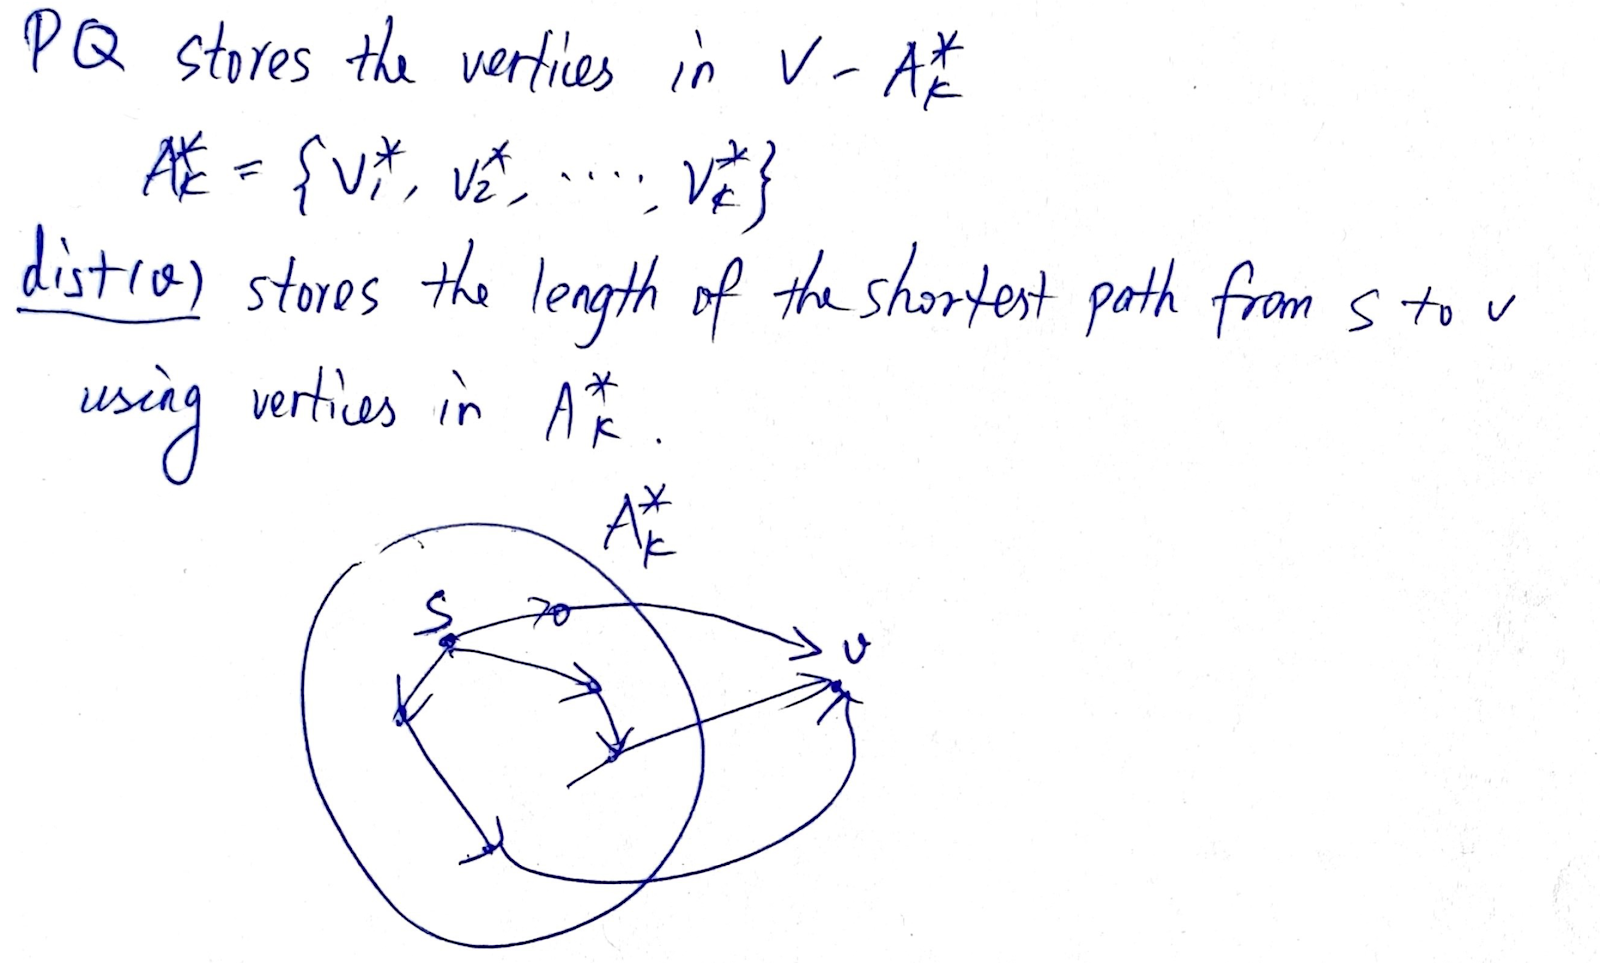 PQ stores the vertices in V - A*k
A*k = {V*1, V*2, ....., V*k}
dist(v) stores the length of the shortest path from s to v
using vertices in A*k.
A*k
S
v